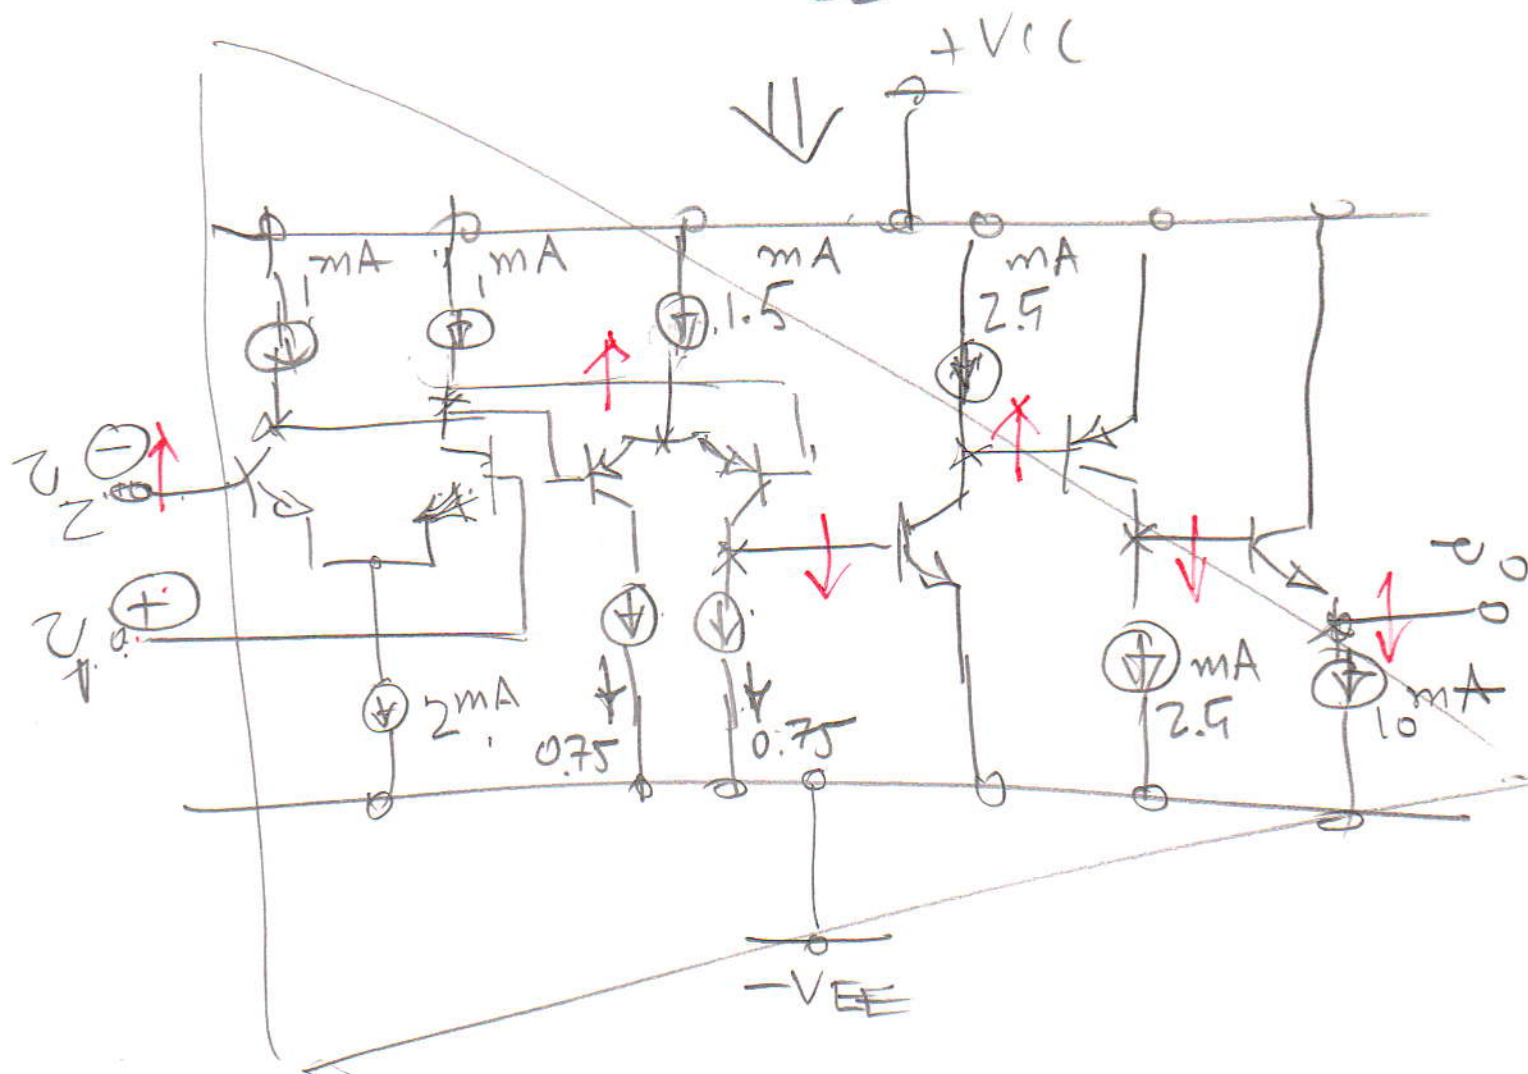 +VCC
1 mA
1 mA
mA
1.5
mA
2.5
v2
−
+
v1
2 mA
0.75
0.75
mA
2.5
mA
10
vo
−VEE